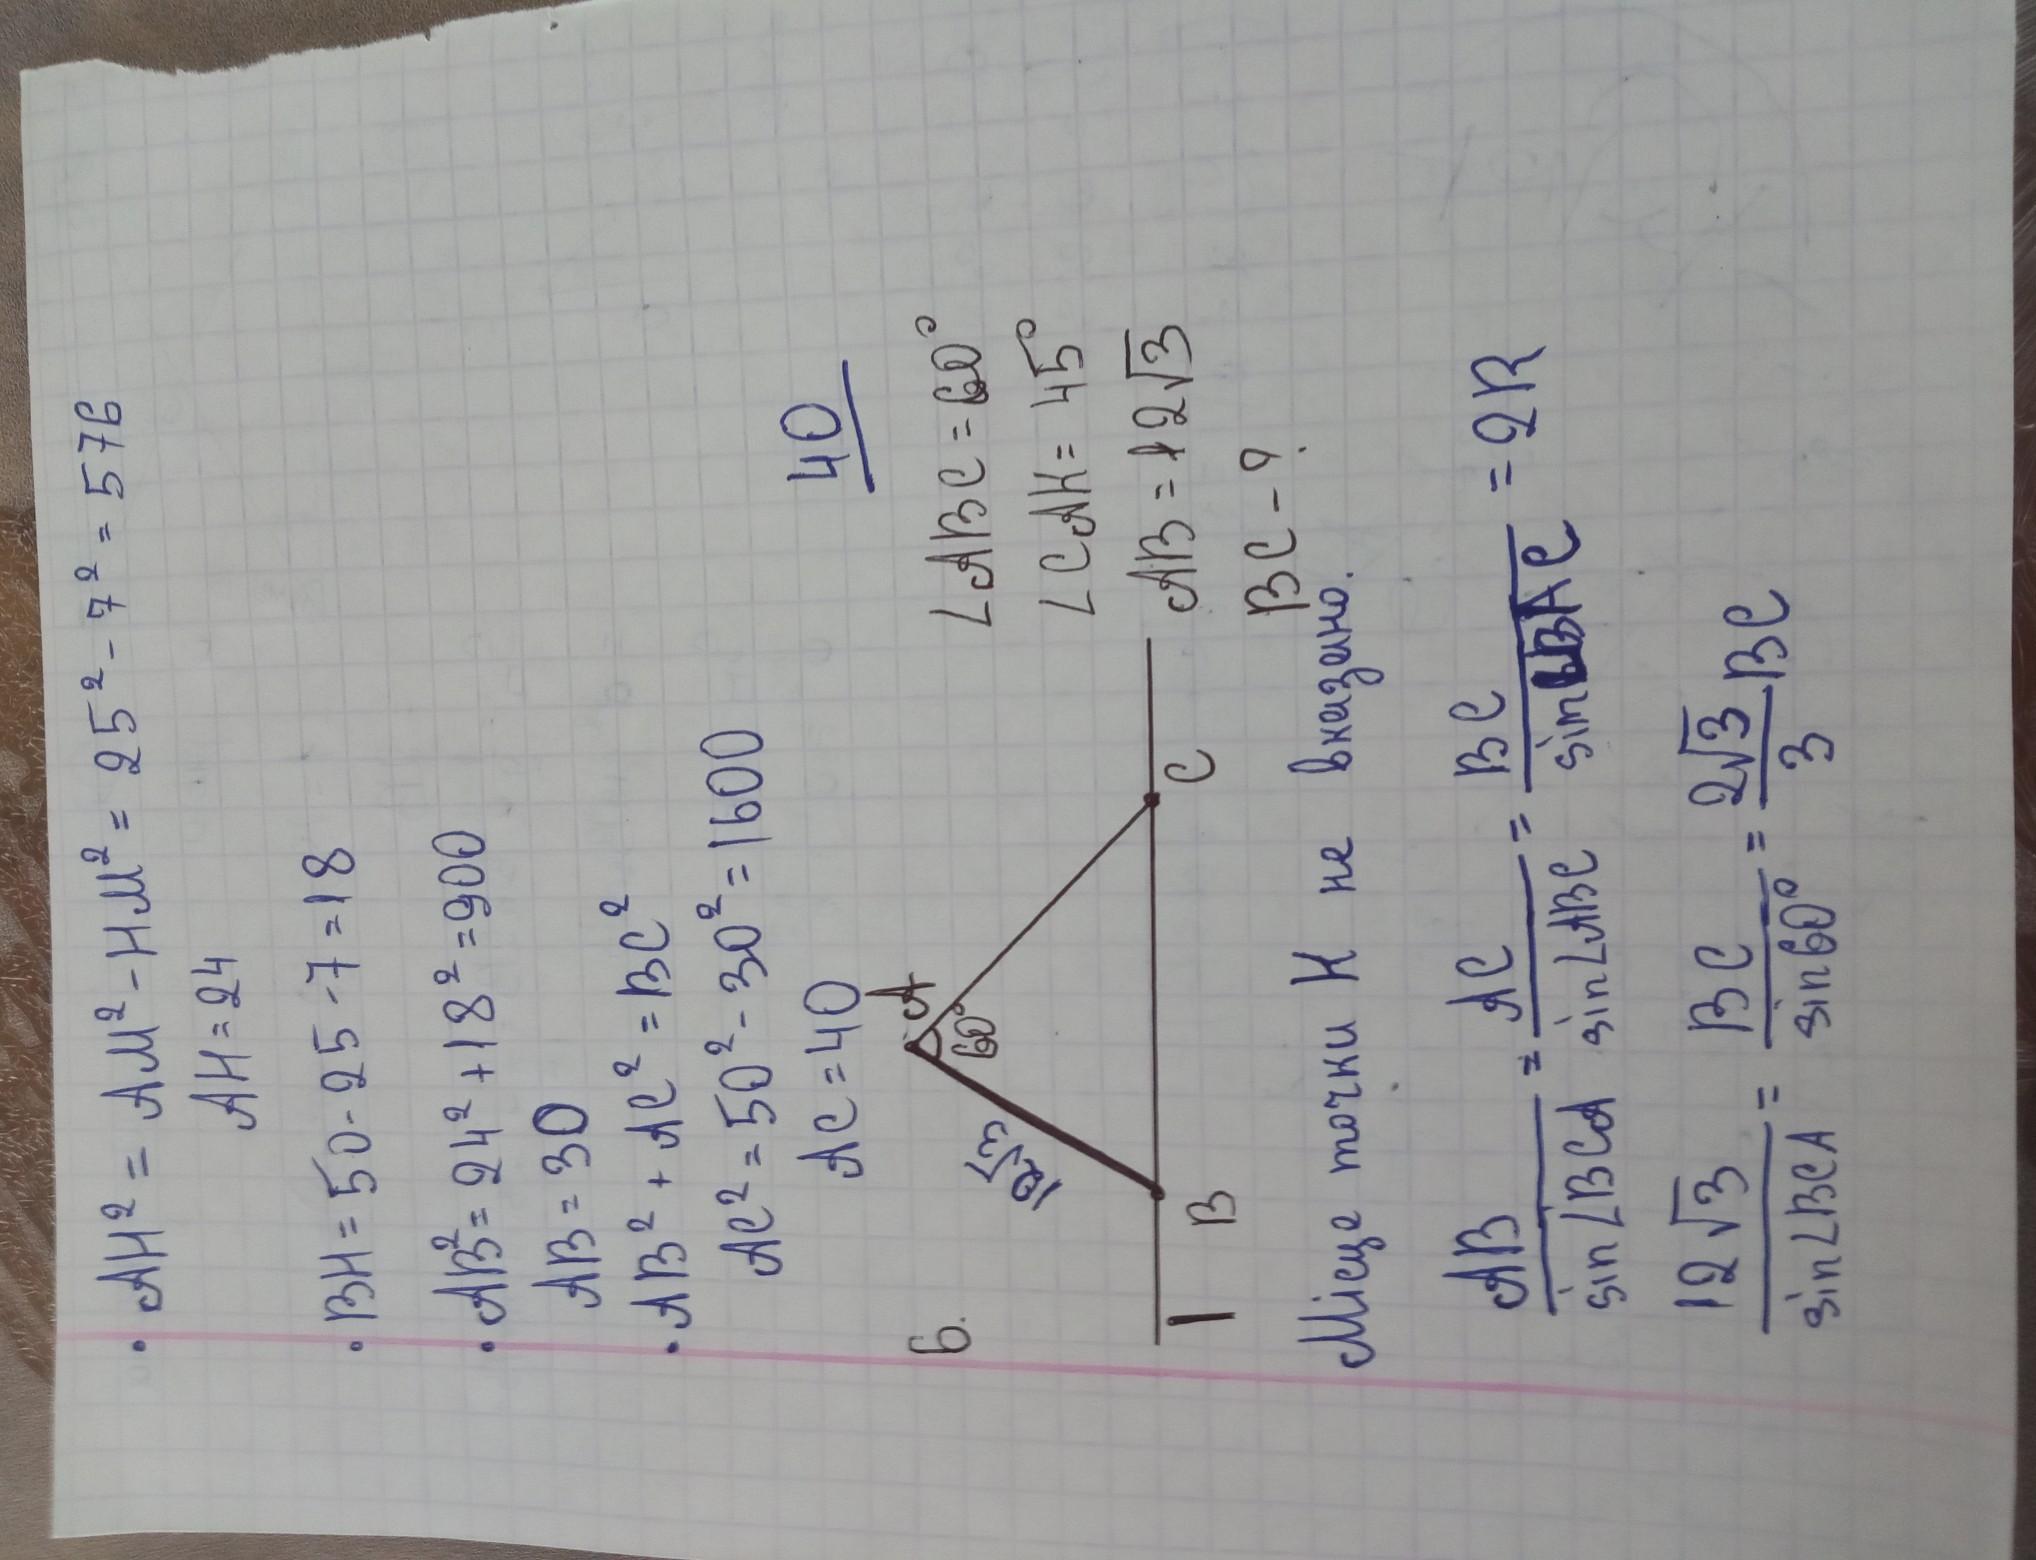 • AH² = AM² - HM² = 25² - 7² = 576
AH = 24
• BH = 50 - 25 - 7 = 18
• AB² = 24² + 18² = 900
AB = 30
• AB² + AC² = BC²
AC² = 50² - 30² = 1600
AC = 40
40
6.
A
60°
12√3
B
C
∠ABC = 60°
∠CAK = 45°
AB = 12√3
BC - ?
Місце точки К не вказано.
AB/sin∠BCA = AC/sin∠ABC = BC/sin∠BAC = 2R
12√3/sin∠BCA = BC/sin60° = 2√3/3 BC